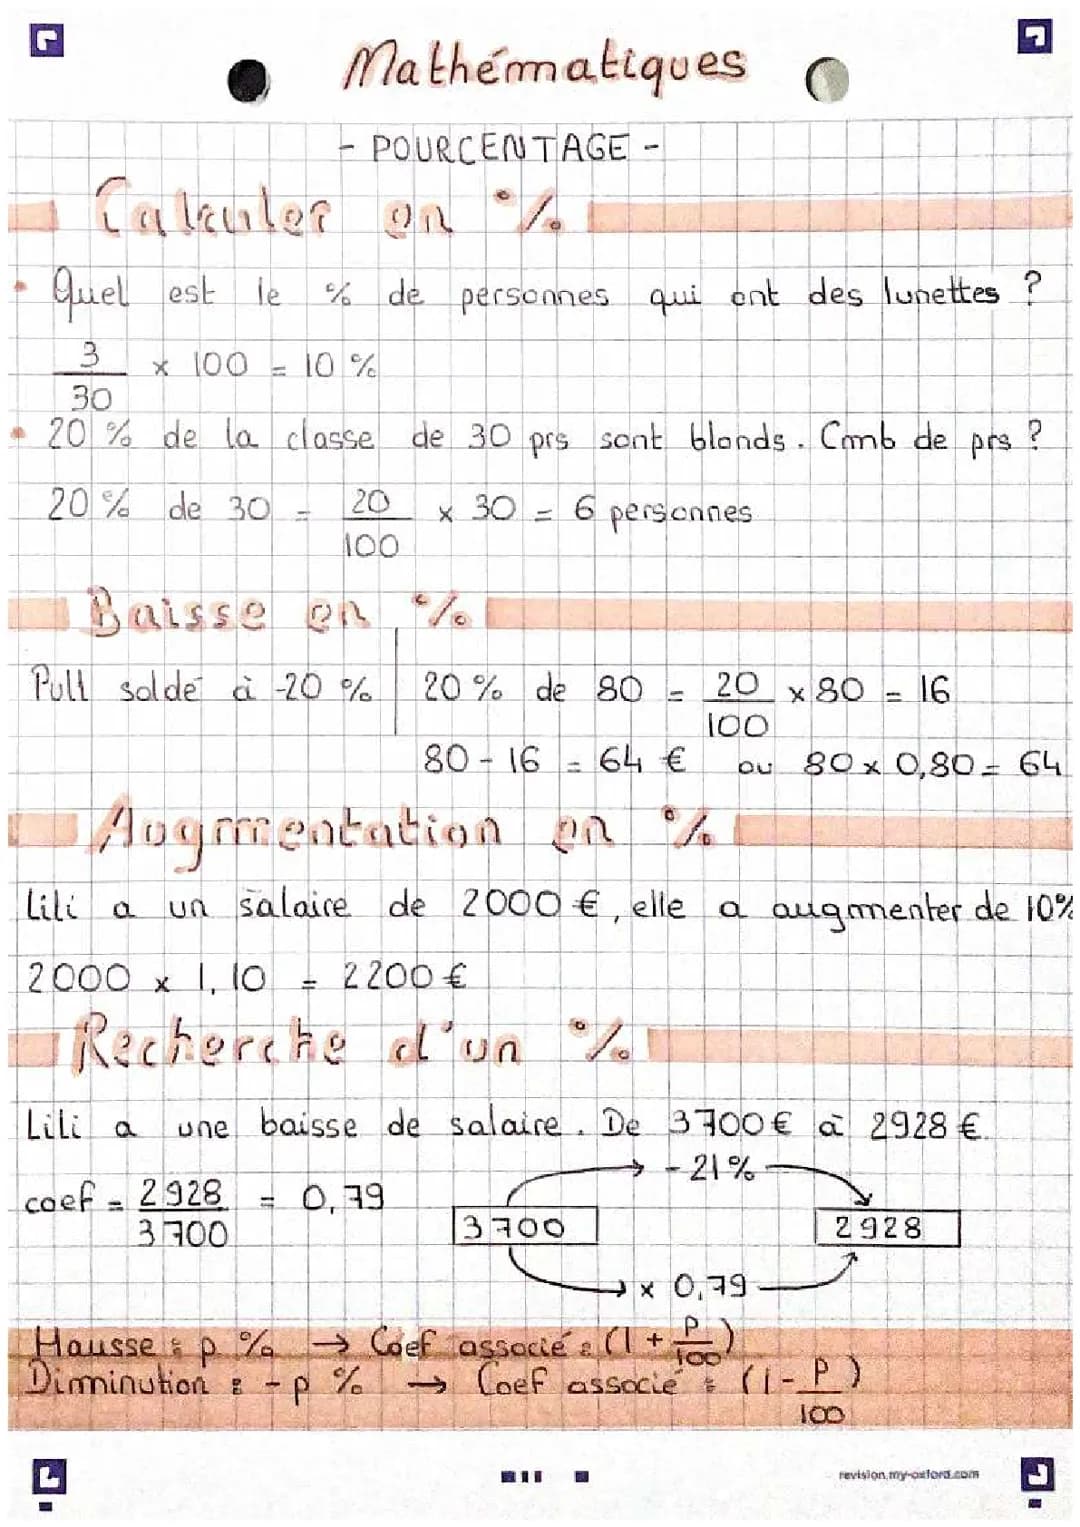 Mathématiques
- POURCENTAGE -
Calculer en %
• Quel est le % de personnes qui ont des lunettes ?
3/30 x 100 = 10 %
• 20 % de la classe de 30 prs sont blonds. Comb de prs ?
20 % de 30 = 20/100 x 30 = 6 personnes
Baisse en %
Pull soldé à -20 % | 20 % de 80 = 20/100 x 80 = 16
80 - 16 = 64 € ou 80 x 0,80 = 64
Augmentation en %
Lili a un salaire de 2000 €, elle a augmenter de 10%
2000 x 1,10 = 2200 €
Recherche d'un %
Lili a une baisse de salaire. De 3700 € à 2928 €.
- 21 %
coef = 2928/3700 = 0,79
3700 2928
x 0,79
Hausse : p % → Coef associé : (1 + P/100)
Diminution : - p % → Coef associé : (1 - P/100)
revision.my-oxford.com